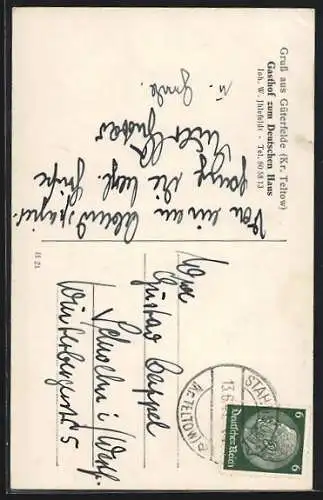 Gruß aus Güterfelde (Kr. Teltow)
Gasthof zum Deutschen Haus
Joh. W. Jhlefeldt - Tel. 80 58 13
Von einem
Abendspazier-
gang die herzl. Grüße
u. Grete.
H 21
Gustav Cappel
Schwelm i/Westf.
Winterbergerstr 5
STAH
13.6
(Kr. TELTOW) a
6
Deutsches Reich
6